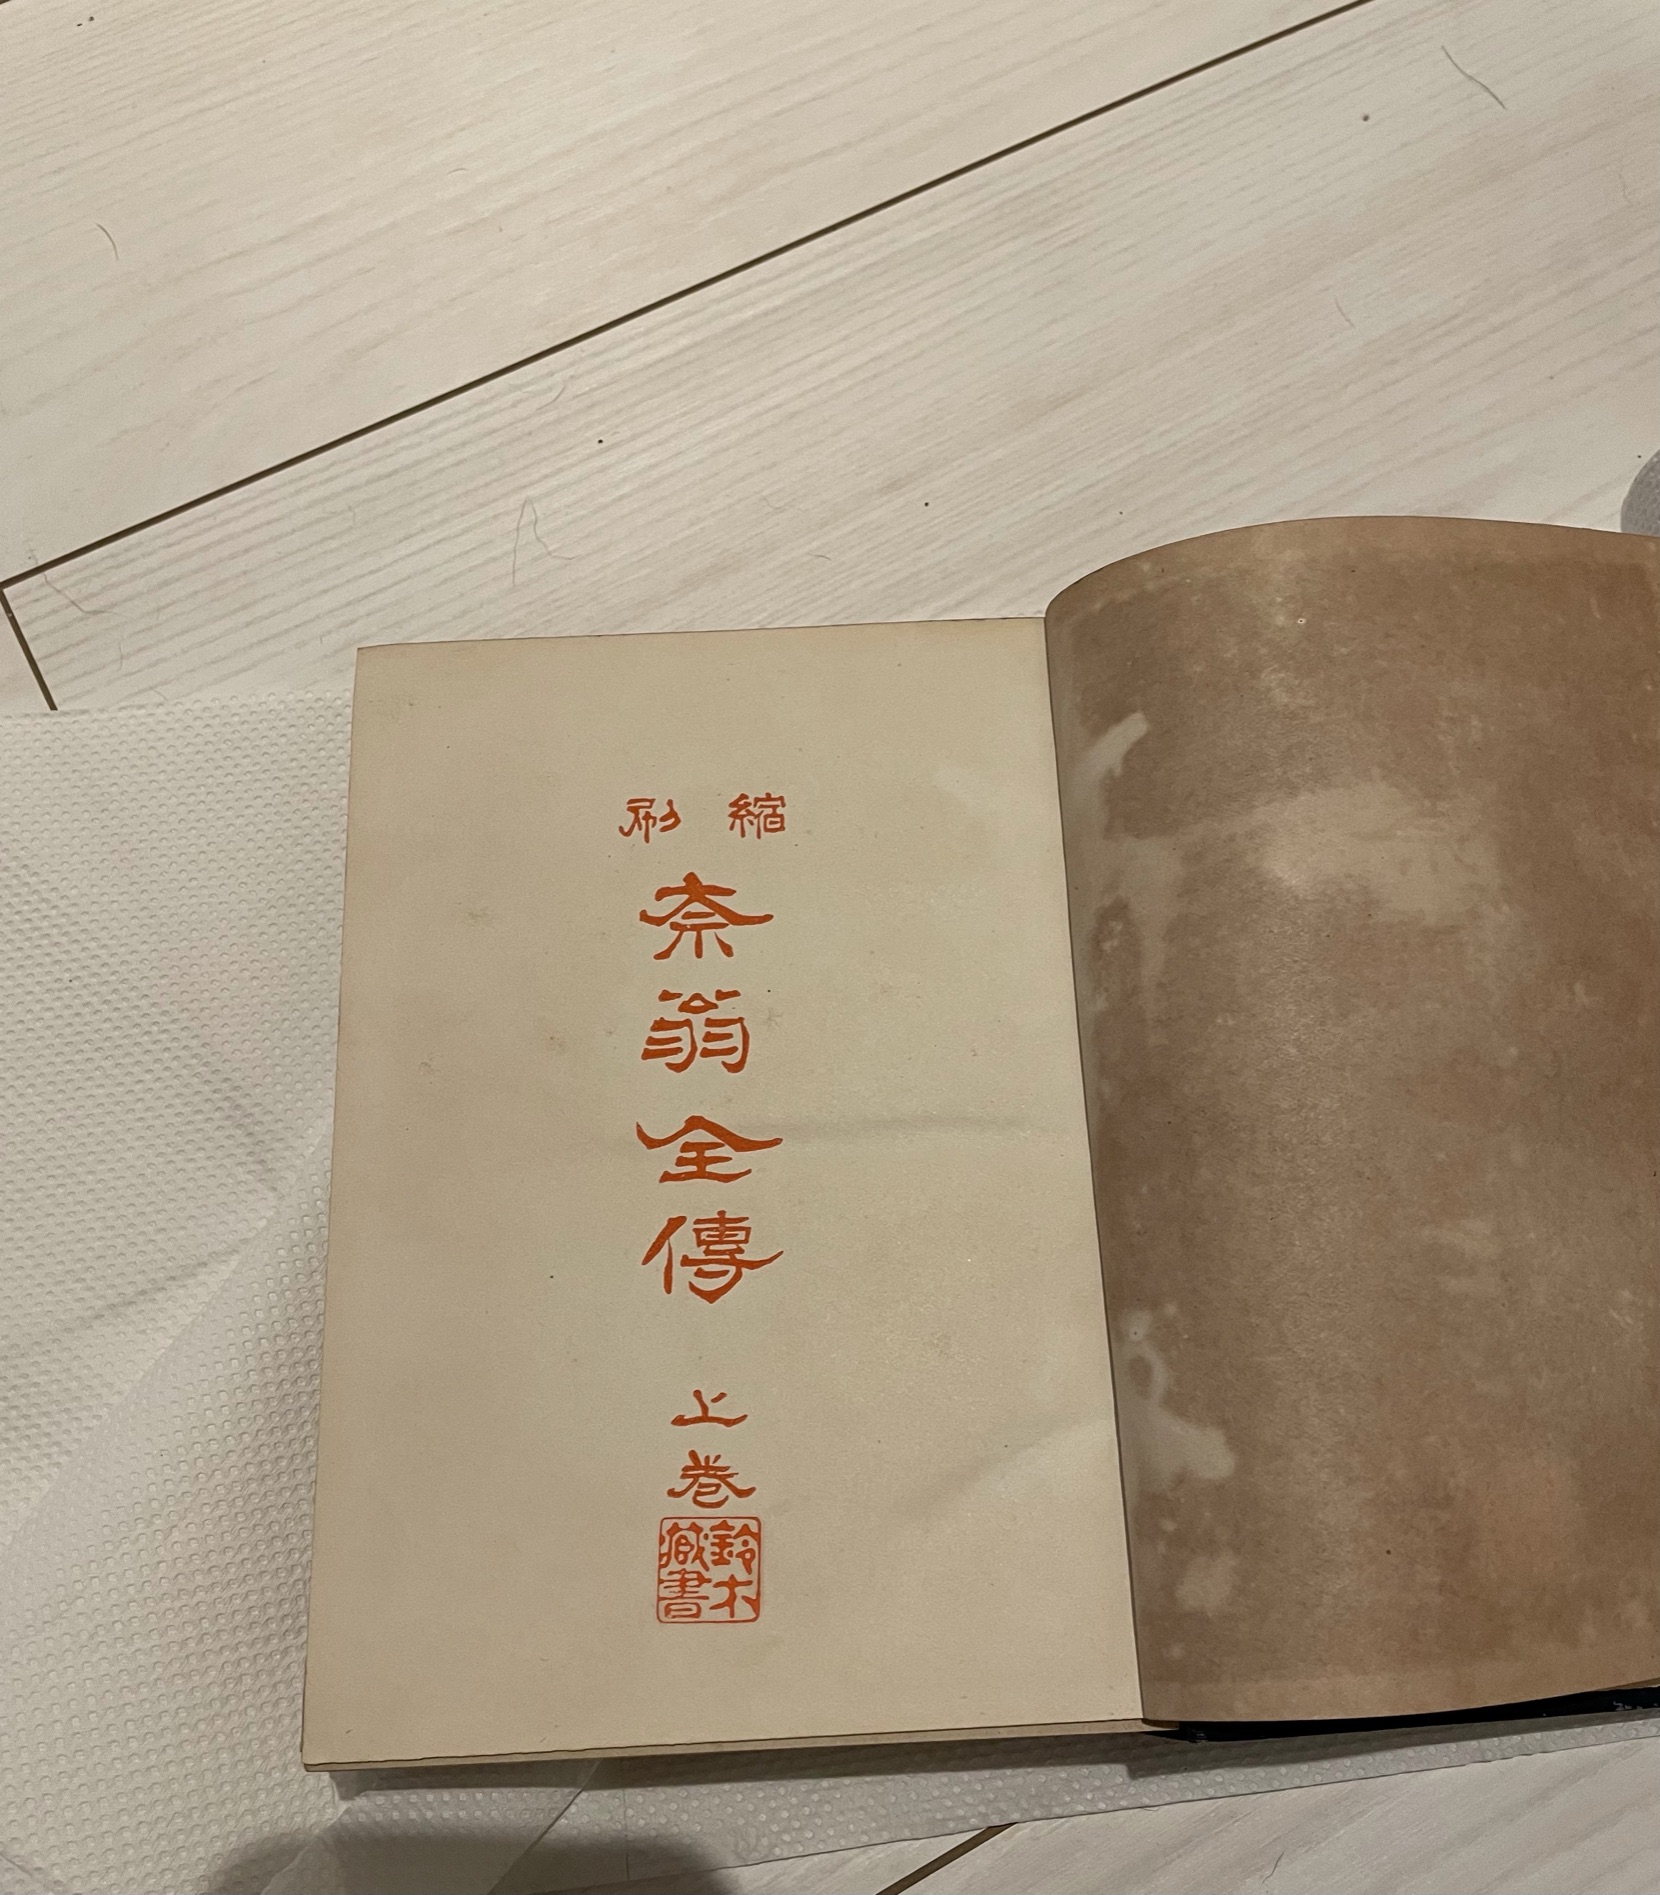 縮刷
奈翁全傳
上巻
鈴木
藏書